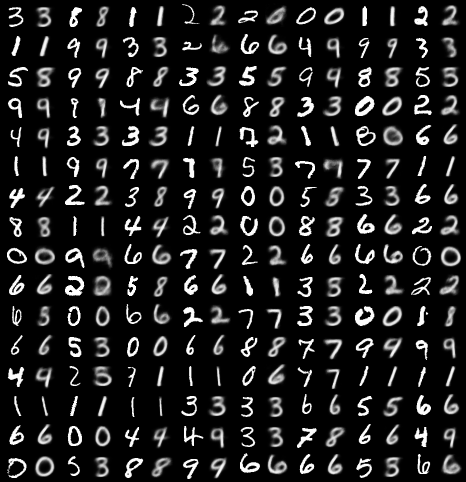 3 3 8 8 1 1 2 2 2 0 0 0 1 1 2 2
1 1 9 9 3 3 2 6 6 6 4 9 9 9 3 3
5 8 9 9 8 8 3 3 5 5 9 4 8 8 5 5
9 9 9 1 4 4 6 6 8 8 3 3 0 0 2 2
4 9 3 3 3 3 1 1 7 2 1 1 8 0 6 6
1 1 9 9 7 7 7 9 5 3 7 9 7 7 1 1
4 4 2 2 3 8 9 9 0 0 5 8 3 3 6 6
8 8 1 1 4 4 2 2 0 0 8 8 6 6 2 2
0 0 9 9 6 6 7 7 2 2 6 6 6 6 0 0
6 6 2 2 5 8 6 6 1 1 3 5 2 2 2 2
6 5 0 0 6 6 2 2 7 7 3 3 0 0 1 8
6 6 5 3 0 0 6 6 8 8 7 7 9 9 9 9
4 9 2 5 7 1 1 1 0 6 7 7 1 1 1 1
1 1 1 1 1 1 3 3 3 3 6 6 5 5 6 6
6 6 0 0 4 4 4 9 3 3 7 8 6 6 4 9
0 0 5 3 8 8 9 9 6 6 6 6 5 3 6 6